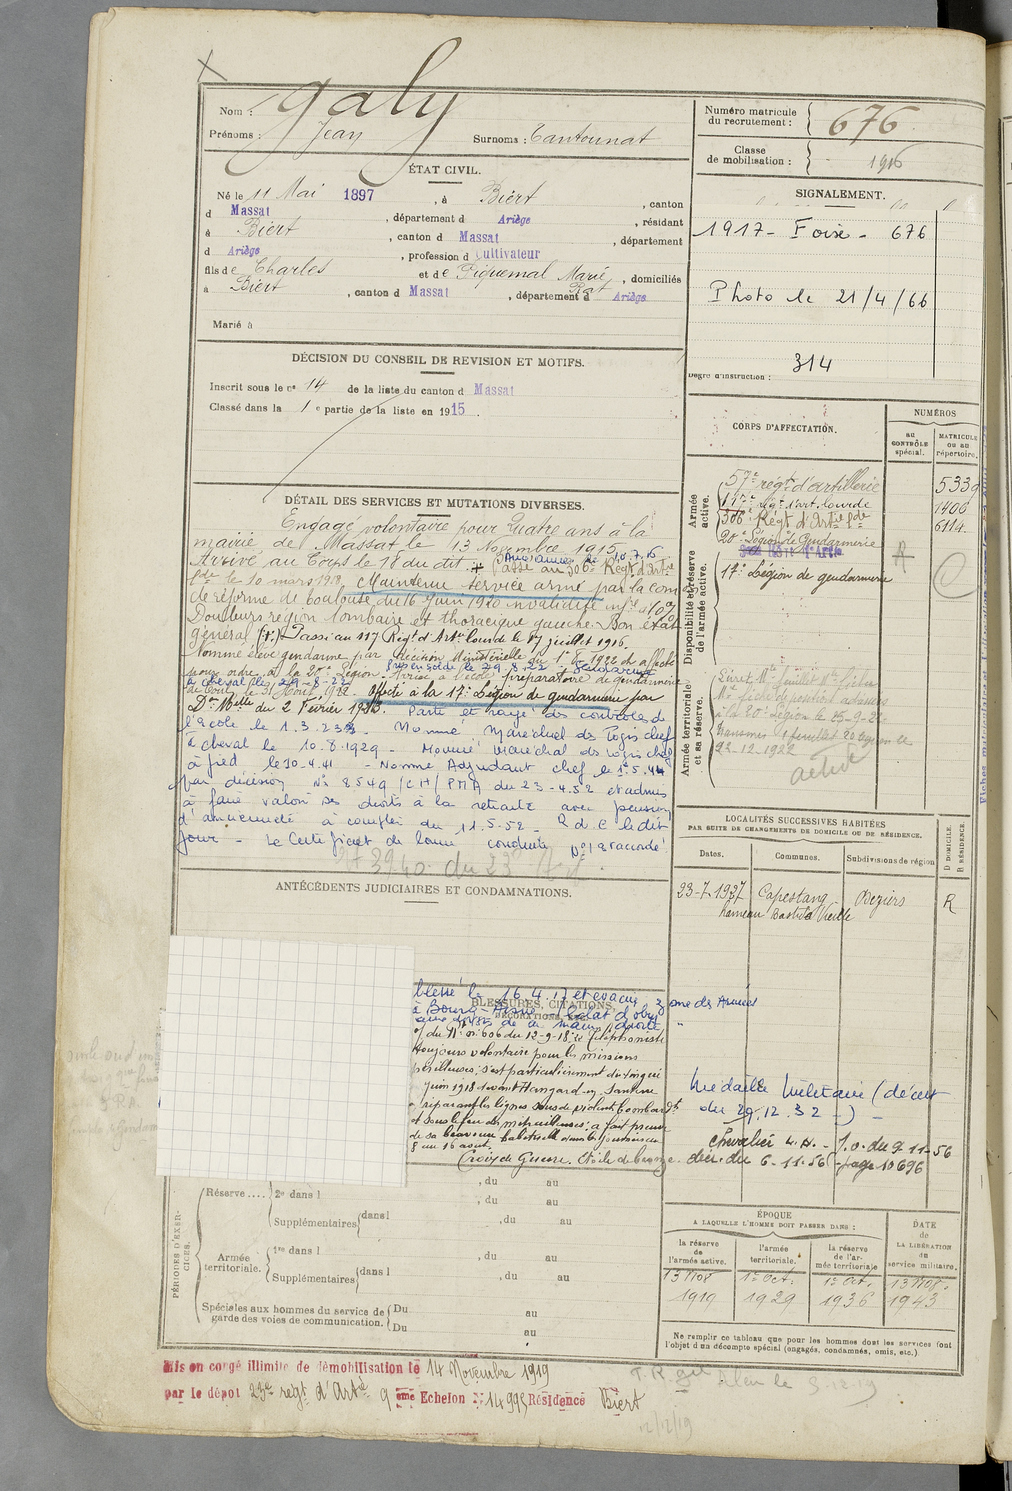 Nom : Galy
Prénoms : Jean Surnoms : Cantounat
ÉTAT CIVIL.
Né le 11 Mai 1897, à Biert, canton
d Massat, département d Ariège, résidant
à Biert, canton d Massat, département
d Ariège, profession d cultivateur
fils de Charles et de Piquemal Marie Rat, domiciliés
à Biert, canton d Massat, département d Ariège
Marié à
DÉCISION DU CONSEIL DE REVISION ET MOTIFS.
Inscrit sous le n° 14 de la liste du canton d Massat
Classé dans la 1e partie de la liste en 1915.
DÉTAIL DES SERVICES ET MUTATIONS DIVERSES.
Engagé volontaire pour quatre ans à la
mairie de Massat le 13 Novembre 1915
Arrivé au Corps le 18 du dit. + Passé au 306e Régt d'Artie
lde le 10 mars 1918, Maintenu service armé par la com
de réforme de Toulouse du 16 Juin 1920 invalidité infre à 10%
Douleurs région lombaire et thoracique gauche. Bon état
général (+) Passé au 117 Régt d'Artie lourde le 17 juillet 1916.
Nommé élève gendarme par décision Ministérielle du 1922 et affecté
pour ordre à la 20e Légion. Arrivé à l'école préparatoire de gendarmerie
à cheval le 29-8-22
de Toul le 31 Août 1922. Affecté à la 17e Légion de gendarmerie par
Don Mlle du 2 Février 1923. Parti et rayé des contrôles de
l'école le 1.3.23. Nommé Maréchal des logis chef
à cheval le 10.8.1929 - Nommé Maréchal des logis chef
à pied le 30.4.41 - Nommé Adjudant chef le 1.5.44
par décision N° 8549/CH/PMA du 23-4.52 est admis
à faire valoir ses droits à la retraite avec pension
d'ancienneté à compter du 11.5-52 - R d C le dit
jour - Le Certificat de bonne conduite
ANTÉCÉDENTS JUDICIAIRES ET CONDAMNATIONS.
BLESSURES, CITATIONS,
DÉCORATIONS, ETC.
blessé le 16.4.17 et évacué zone des Armées
à Bourg-Aisne Éclat d'obus
de la main droite
du N° 606 du 12-9-18 Téléphoniste
toujours volontaire pour les missions
périlleuses, s'est particulièrement distingué
Juin 1918 devant Hangard en Santerre
réparant les lignes sous de violents bombardts
et sous le feu des mitrailleuses; a fait preuve
de sa bravoure habituelle dans les journées du
8 au 16 août.
Croix de Guerre. Étoile de bronze.
Médaille Militaire (décret
du 29.12.32 -) -
Chevalier L.H. - J.O. du 9-11-56
décr. du 6-11-56 (page 10696
PÉRIODES D'EXERCICES.
, du au
, du au
Réserve.... 2e dans l
Supplémentaires dans l , du au
Armée territoriale. 1re dans l , du au
Supplémentaires dans l , du au
Spéciales aux hommes du service de garde des voies de communication. Du au
Du au
Mis en congé illimité de démobilisation le 14 Novembre 1919
par le dépôt 23e régt d'Artie 9 ème Echelon N° 14995 Résidence Biert
12/12/19
Numéro matricule du recrutement : 676
Classe de mobilisation : 1916
SIGNALEMENT.
1917 - Foix - 676
Photo le 21/4/66
314
Degré d'instruction :
CORPS D'AFFECTATION.
NUMÉROS
au CONTRÔLE spécial.
MATRICULE ou au répertoire.
Armée active.
57e régt d'artillerie 5339
117e Régt d'art. lourde 1406
306e Régt d'Artie lde 6114
20e Légion de Gendarmerie
Disponibilité et réserve de l'armée active.
17e Légion de gendarmerie
Armée territoriale et sa réserve.
à la 20e Légion le 25-9-22
22-12-1922
LOCALITÉS SUCCESSIVES HABITÉES
PAR SUITE DE CHANGEMENTS DE DOMICILE OU DE RÉSIDENCE.
Dates. Communes. Subdivisions de région D DOMICILE. R RÉSIDENCE.
23-7-1937 Capestang Béziers R
hameau Bastide Vieille
ÉPOQUE
A LAQUELLE L'HOMME DOIT PASSER DANS :
la réserve de l'armée active. l'armée territoriale. la réserve de l'armée territoriale
DATE DE LA LIBÉRATION du service militaire.
13 Nov 1919 1er Oct. 1929 1er Oct. 1936 13 Nov. 1943
Ne remplir ce tableau que pour les hommes dont les services font
l'objet d'un décompte spécial (engagés, condamnés, omis, etc.)